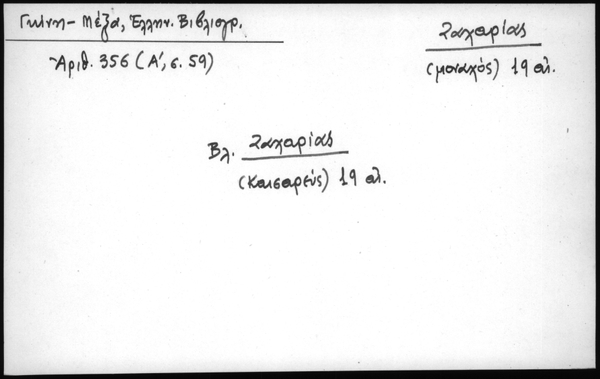 Γκίνη - Μέξα, Ἑλλην. Βιβλιογρ.
Ἀριθ. 356 (Α΄, σ. 59)
Ζαχαρίας
(μοναχός) 19 αἰ.
Βλ. Ζαχαρίας
(Καισαρεύς) 19 αἰ.